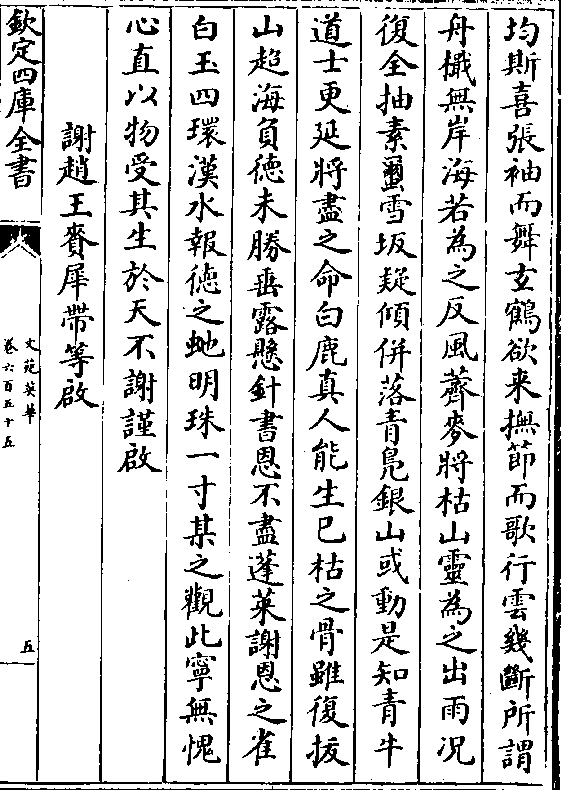 均斯喜張袖而舞玄鶴欲来撫節而歌行雲幾斷所謂
舟檝無岸海若為之反風薺麥將枯山靈為之出雨况
復全抽素蠒雪坂疑傾併落青鳬銀山或動是知青牛
道士更延將盡之命白鹿真人能生已枯之骨雖復拔
山超海負德未勝垂露懸針書恩不盡蓬萊謝恩之雀
白玉四環漢水報德之虵明珠一寸某之觀此寧無愧
心直以物受其生於天不謝謹啟
謝趙王賚犀帶等啟
欽定四庫全書
文苑英華
卷六百五十五
五